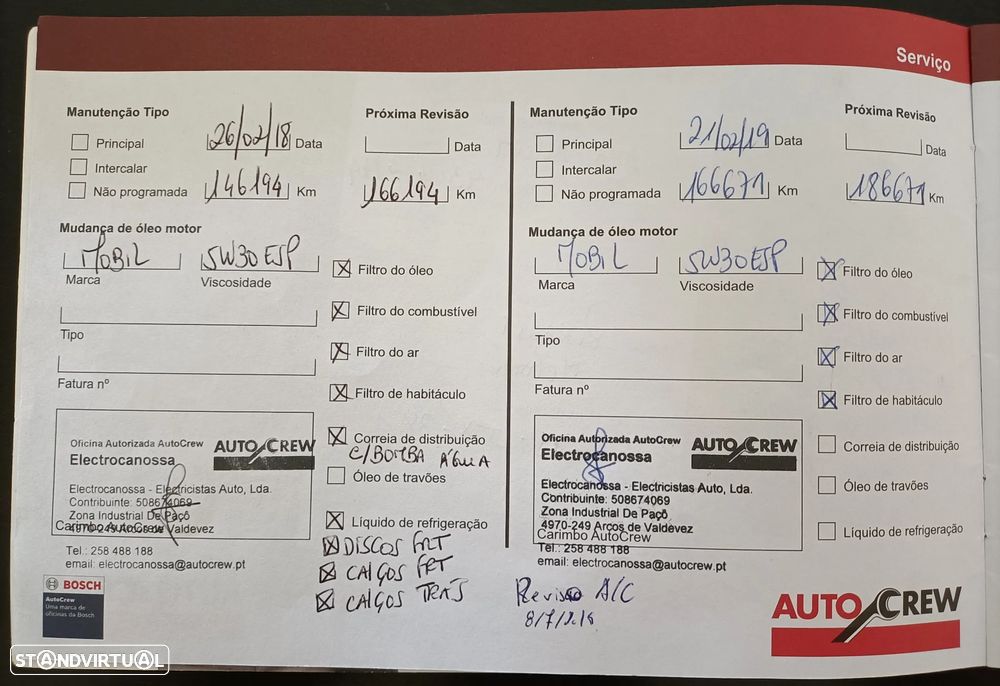 Serviço
Manutenção Tipo
Principal
Intercalar
Não programada
26/02/18 Data
146194 Km
Próxima Revisão
Data
166194 Km
Mudança de óleo motor
MOBIL
Marca
5W30 ESP
Viscosidade
Tipo
Fatura nº
Filtro do óleo
Filtro do combustível
Filtro do ar
Filtro de habitáculo
Correia de distribuição
C/BOMBA ÁGUA
Óleo de travões
Líquido de refrigeração
DISCOS FRT
CALÇOS FRT
CALÇOS TRÁS
Oficina Autorizada AutoCrew
Electrocanossa
AUTO CREW
Electrocanossa - Electricistas Auto, Lda.
Contribuinte: 508674069
Zona Industrial De Paçô
4970-249 Arcos de Valdevez
Carimbo AutoCrew
Tel.: 258 488 188
email: electrocanossa@autocrew.pt
BOSCH
AutoCrew
Uma marca de
oficinas da Bosch
Manutenção Tipo
Principal
Intercalar
Não programada
21/02/19 Data
166671 Km
Próxima Revisão
Data
186671 Km
Mudança de óleo motor
MOBIL
Marca
5W30 ESP
Viscosidade
Tipo
Fatura nº
Filtro do óleo
Filtro do combustível
Filtro do ar
Filtro de habitáculo
Correia de distribuição
Óleo de travões
Líquido de refrigeração
Oficina Autorizada AutoCrew
Electrocanossa
AUTO CREW
Electrocanossa - Electricistas Auto, Lda.
Contribuinte: 508674069
Zona Industrial De Paçô
4970-249 Arcos de Valdevez
Carimbo AutoCrew
Tel.: 258 488 188
email: electrocanossa@autocrew.pt
Revisão A/C
AUTO CREW
STANDVIRTUAL